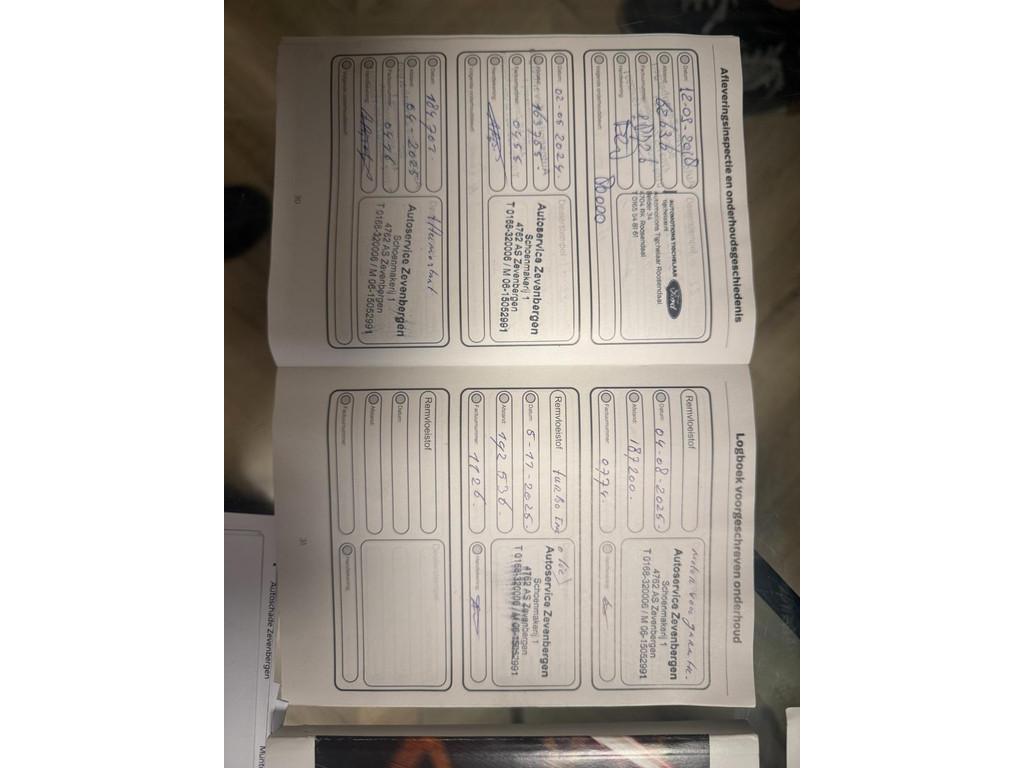 Afleveringsinspectie en onderhoudsgeschiedenis
Datum 12-09-2018
Afstand
Factuurnummer
Handtekening
Volgende onderhoudsbeurt 80000
AUTOMOTIONS TIGCHELAAR
tigchelaar.nl
Automotions Tigchelaar Roosendaal
Belder 34
4704 RK Roosendaal
T 0165 54 81 61
Ford
Datum 02-05 2024.
Afstand 169755
Factuurnummer 0455
Handtekening
Volgende onderhoudsbeurt
Dealerstempel
Autoservice Zevenbergen
Schoenmakerij 1
4762 AS Zevenbergen
T 0168-320006 / M 06-15052991
Datum 184707.
Afstand 04-2025
Factuurnummer 0476
Handtekening
Volgende onderhoudsbeurt
Autoservice Zevenbergen
Schoenmakerij 1
4762 AS Zevenbergen
T 0168-320006 / M 06-15052991
30
Logboek voorgeschreven onderhoud
Remvloeistof
Datum 04-08-2025.
Afstand 187200.
Factuurnummer 0774.
motor
Autoservice Zevenbergen
Schoenmakerij 1
4762 AS Zevenbergen
T 0168-320006 / M 06-15052991
Handtekening
Remvloeistof turbo
Datum 5-11-2025.
Afstand 192536.
Factuurnummer 1126.
Autoservice Zevenbergen
Schoenmakerij 1
4762 AS Zevenbergen
T 0168-320006 / M 06-15052991
Handtekening
Remvloeistof
Datum
Afstand
Factuurnummer
Dealerstempel
Handtekening
31
Autoschade Zevenbergen